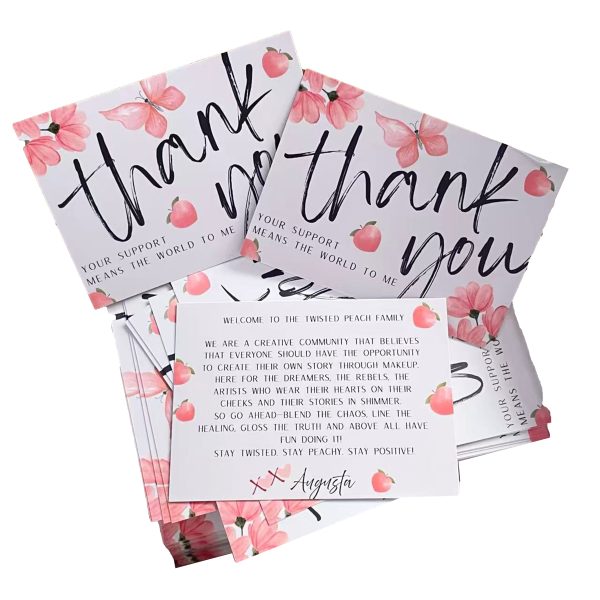 thank
you
YOUR SUPPORT
MEANS THE WORLD TO ME
thank
you
YOUR SUPPORT
MEANS THE WORLD TO ME
WELCOME TO THE TWISTED PEACH FAMILY
WE ARE A CREATIVE COMMUNITY THAT BELIEVES
THAT EVERYONE SHOULD HAVE THE OPPORTUNITY
TO CREATE THEIR OWN STORY THROUGH MAKEUP.
HERE FOR THE DREAMERS, THE REBELS, THE
ARTISTS WHO WEAR THEIR HEARTS ON THEIR
CHEEKS AND THEIR STORIES IN SHIMMER.
SO GO AHEAD—BLEND THE CHAOS, LINE THE
HEALING, GLOSS THE TRUTH AND ABOVE ALL HAVE
FUN DOING IT!
STAY TWISTED. STAY PEACHY. STAY POSITIVE!
XX Augusta
YOUR SUPPOR
MEANS THE WO